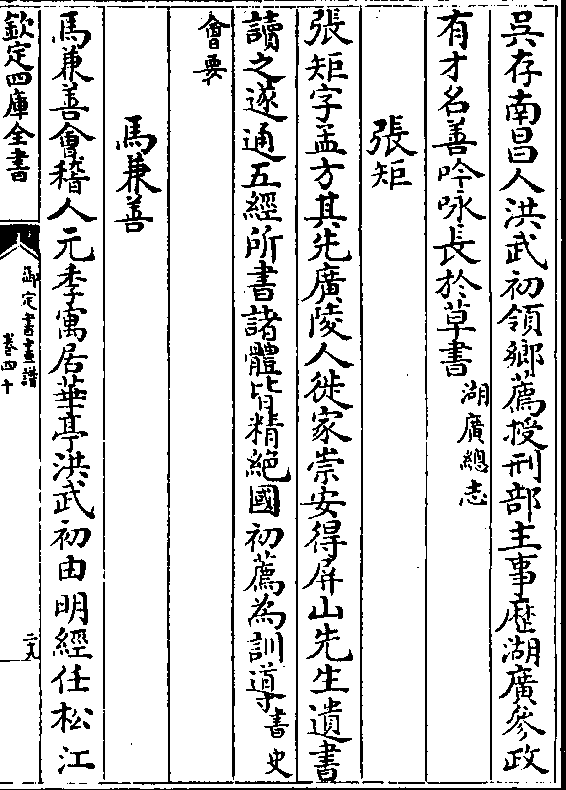 吳存南昌人洪武初領鄉薦授刑部主事歷湖廣參政
有才名善吟咏長於草書湖廣總志
張矩
張矩字孟方其先廣陵人徙家崇安得屏山先生遺書
讀之遂通五經所書諸體皆精絕國初薦為訓導書史
會要
馬兼善
馬兼善會稽人元季寓居華亭洪武初由明經任松江
欽定四庫全書
御定書畫譜
卷四十
二九